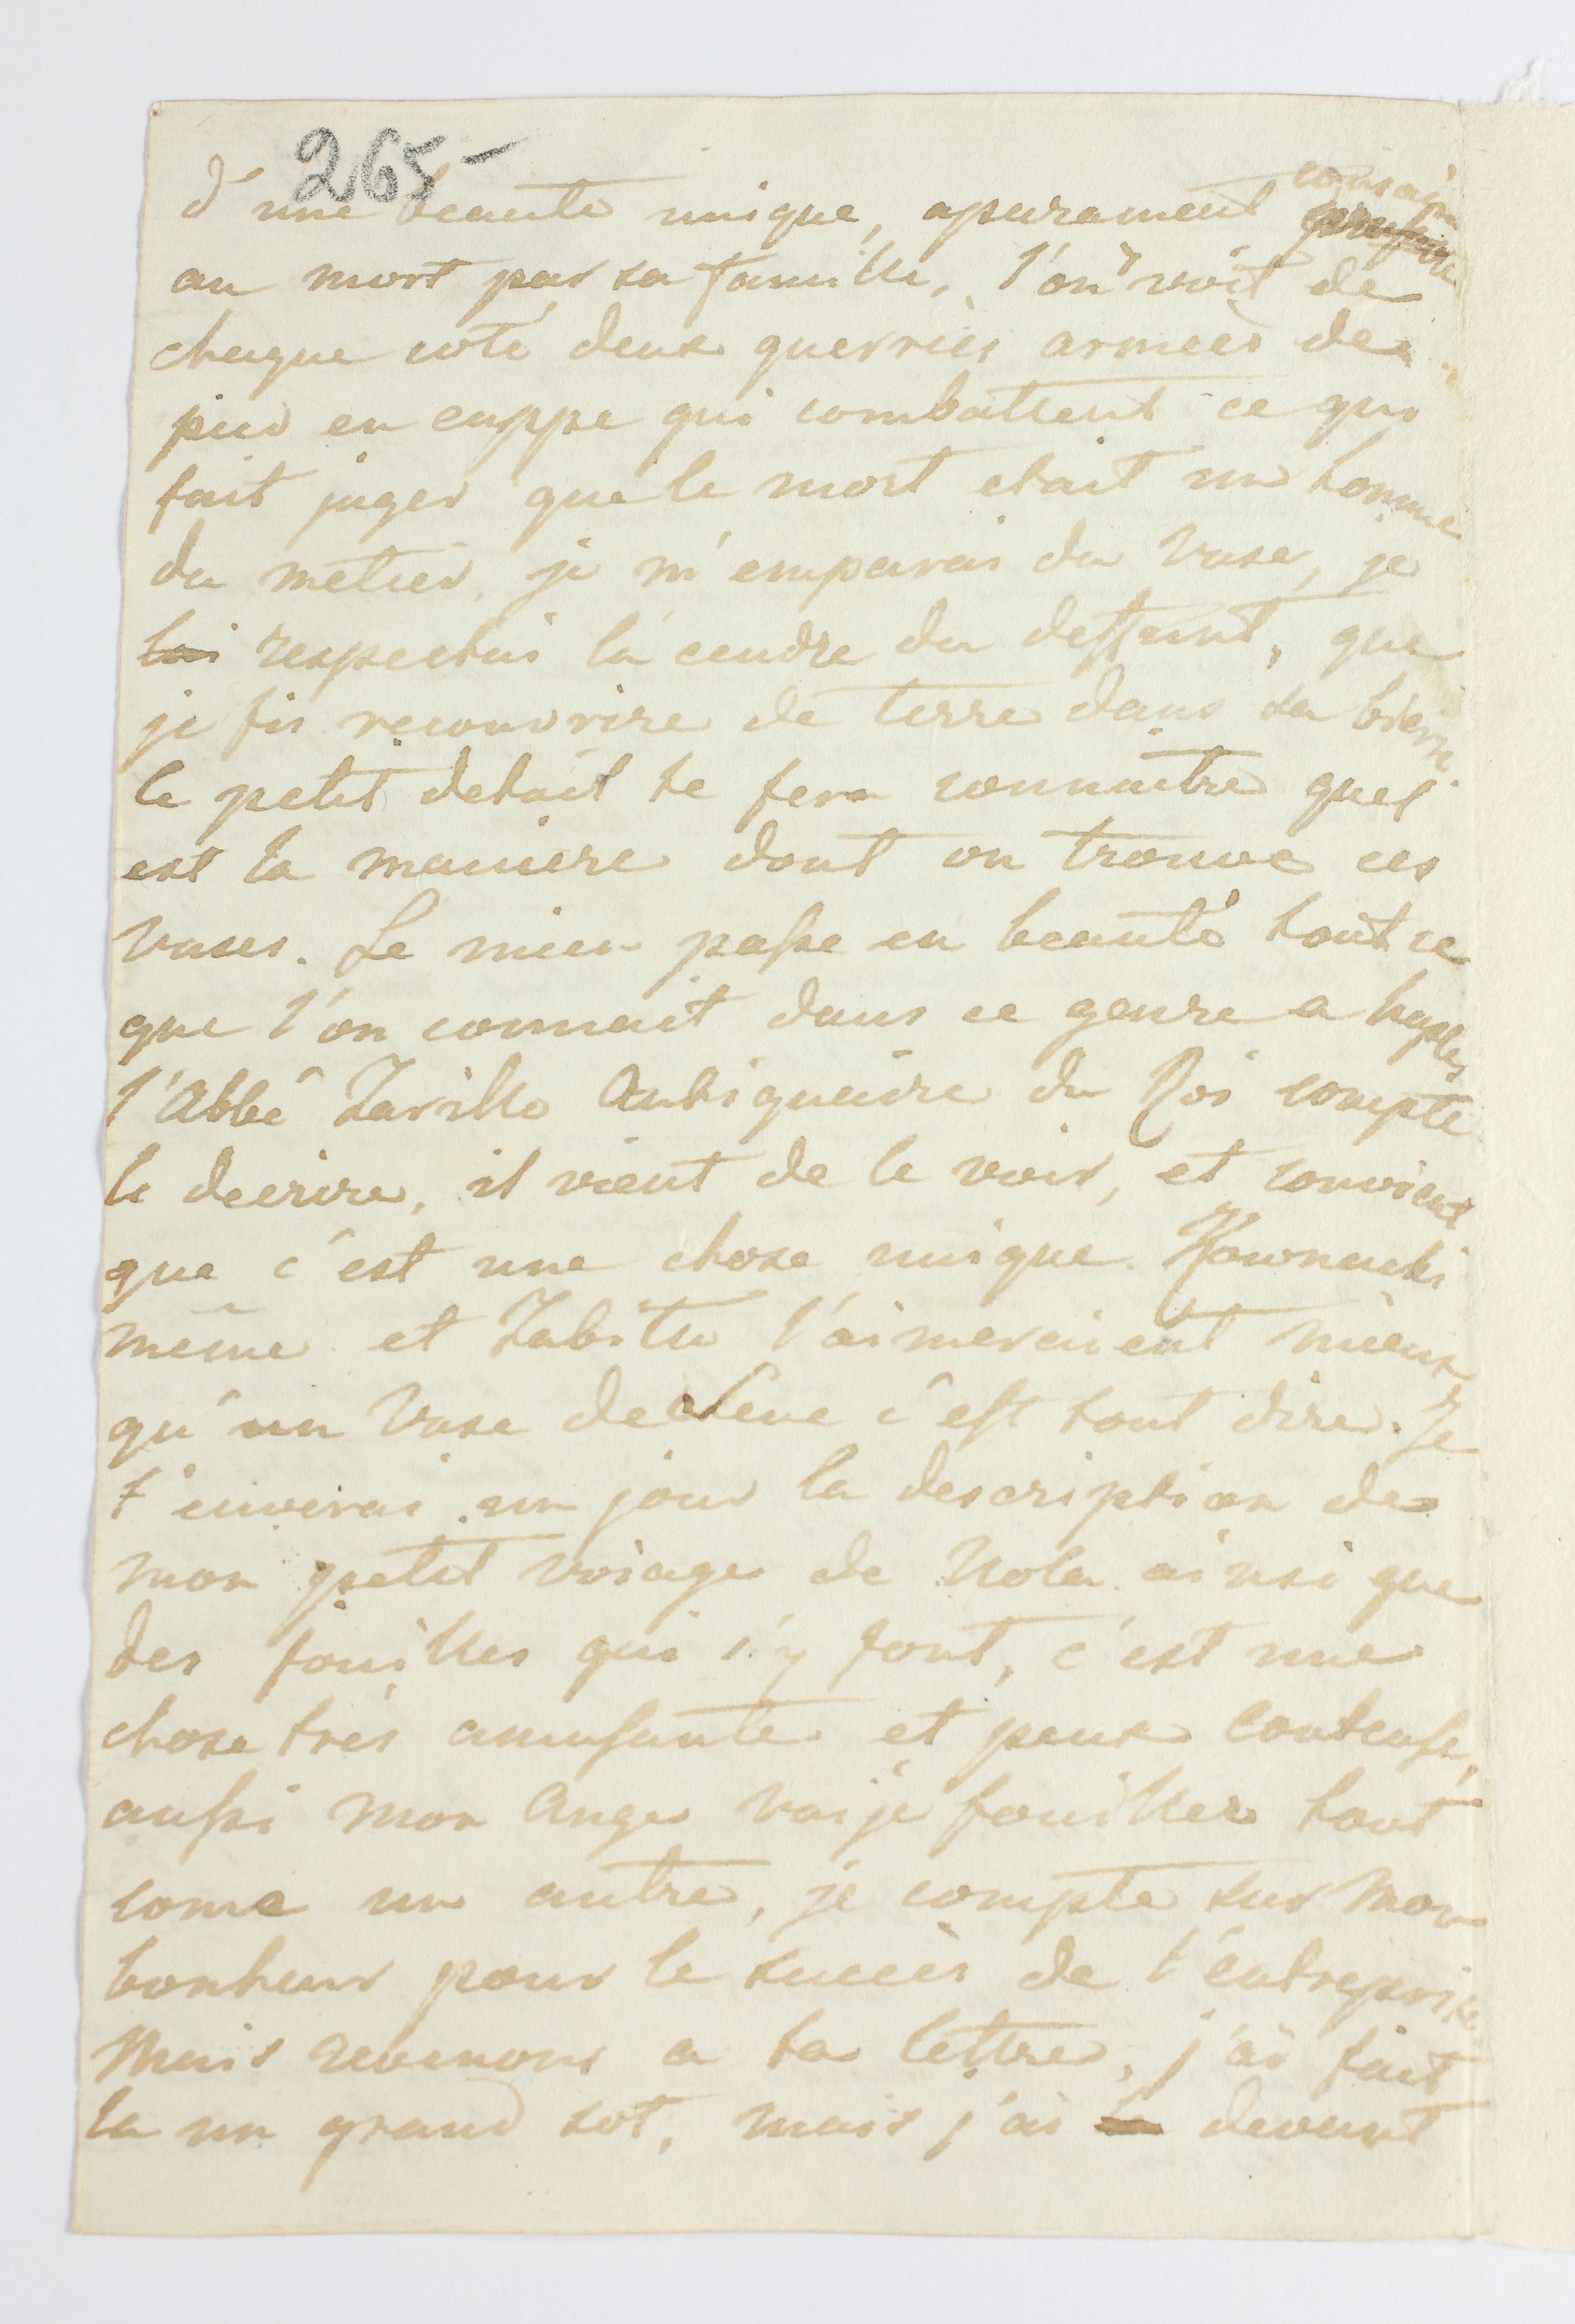 265-
d'une beauté unique, aparament consacré
au mort par sa famille, l'on y voit de
chaque coté deux guerriers armées de
pied en cappe qui combattent ce qui
fait juger que le mort etait un homme
du metier, je m'emparai du Vase, je
lui respectai la cendre du deffunt, que
je fis recouvrire de terre dans sa bierre.
Ce petit detail te fera connaitre quel
est la maniere dont on trouve ces
Vases. Le mien passe en beauté tout ce
que l'on connait dans ce genre a Naples
l'Abbé Zarillo Antiquaire du Roi compte
le decrire, il vient de le voir, et convient
que c'est une chose unique. Kownacki
même et Zabiello l'aimeraient mieux
qu'un Vase de Seve c'est tout dire. Je
t'enverai un jour la description de
mon petit voiage de Nola ainsi que
des fouilles qui s'y font, c'est une
chose très amusante et peux couteuse,
aussi mon Ange vai je fouiller tout
come un autre, je compte sur mon
bonheur pour le succès de l'entreprise.
Mais revenons a ta lettre, j'ai fait
la un grand sot, mais j'ai devant